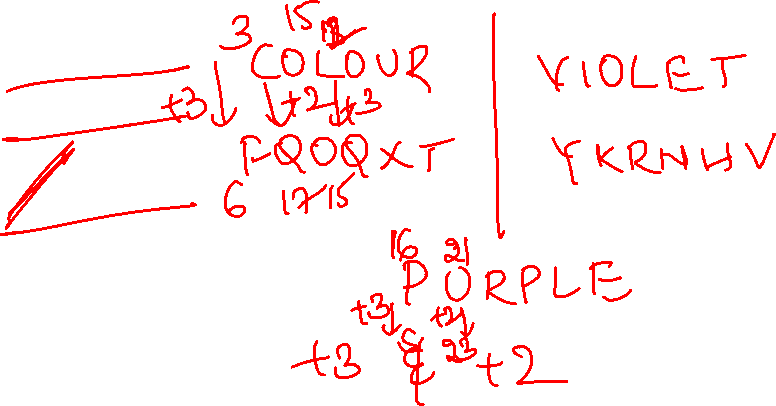 3 15
COLOUR
+3 +2 +3
FQOQXT
6 17 15
VIOLET
YKRNHV
16 21
PURPLE
+3 +2
+3 23 +2